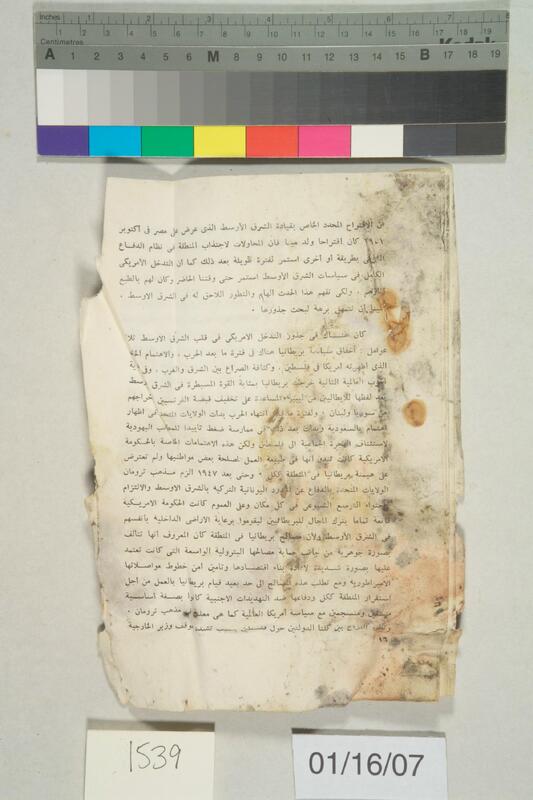 Inches 1 2 3 4 5 6 7 8
Centimetres
A 1 2 3 4 5 6 M 8 9 10 11 12 13 14 15 B 17 18 19
الاقتراح المحدد الخاص بقيادة الشرق الأوسط الذى عرض على مصر فى أكتوبر
كان اقتراحا ولد ميتا فان المحاولات لاجتذاب المنطقة فى نظام الدفاع
بطريقة أو أخرى استمر لفترة طويلة بعد ذلك كما ان التدخل الأمريكى
الكامل فى سياسات الشرق الأوسط استمر حتى وقتنا الحاضر وكان لهم بالطبع
ولكى نفهم هذا الحدث الهام والتطور اللاحق له فى الشرق الاوسط ،
أن نتمهل برهة لبحث جذورها .
كان هناك فى جذور التدخل الامريكى فى قلب الشرق الاوسط
عوامل : اخفاق سياسة بريطانيا هناك فى فترة ما بعد الحرب ، والاهتمام
الذى أظهرته امريكا فى فلسطين . وكثافة الصراع بين الشرق والغرب . وفى
الحرب العالمية الثانية خرجت بريطانيا بمثابة القوة المسيطرة فى الشرق
بعد لفظها للايطاليين من ليبيا والمساعدة على تخفيف قبضة الفرنسيين
من سوريا ولبنان . ولفترة ما بعد انتهاء الحرب بدأت الولايات المتحدة فى اظهار
اهتمام بالسعودية وبدأت بعد ذلك فى ممارسة ضغط تأييدا للمطالب اليهودية
لاستئناف الهجرة الجماعية الى فلسطين ولكن هذه الاهتمامات الخاصة بالحكومة
الأمريكية كانت تبدو أنها فى طبيعة العمل لمصلحة بعض مواطنيها ولم تعترض
على هيمنة بريطانيا فى المنطقة ككل . وحتى بعد ١٩٤٧ الزم مذهب ترومان
الولايات المتحدة بالدفاع عن الحدود اليونانية التركية بالشرق الاوسط والالتزام
باحتواء التوسع الشيوعى فى كل مكان وعلى العموم كانت الحكومة الامريكية
قانعة تماما بترك المجال للبريطانيين ليقوموا برعاية الاراضى الداخلية بأنفسهم
فى الشرق الأوسط ولأن مصالح بريطانيا فى المنطقة كان المعروف أنها تتألف
بصورة جوهرية من جانب حماية مصالحها البترولية الواسعة التى كانت تعتمد
عليها بصورة شديدة لاعادة بناء اقتصادها وتأمين أمن خطوط مواصلاتها
الامبراطورية ومع تطلب هذه المصالح الى حد بعيد قيام بريطانيا بالعمل من أجل
استقرار المنطقة ككل ودفاعها ضد التهديدات الاجنبية كانوا بصفة أساسية
ومنسجمين مع سياسة أمريكا العالمية كما هى معلنة مذهب ترومان .
بين كلتا الدولتين حول فلسطين بسبب تشدد موقف وزير الخارجية
١٦
1539
01/16/07